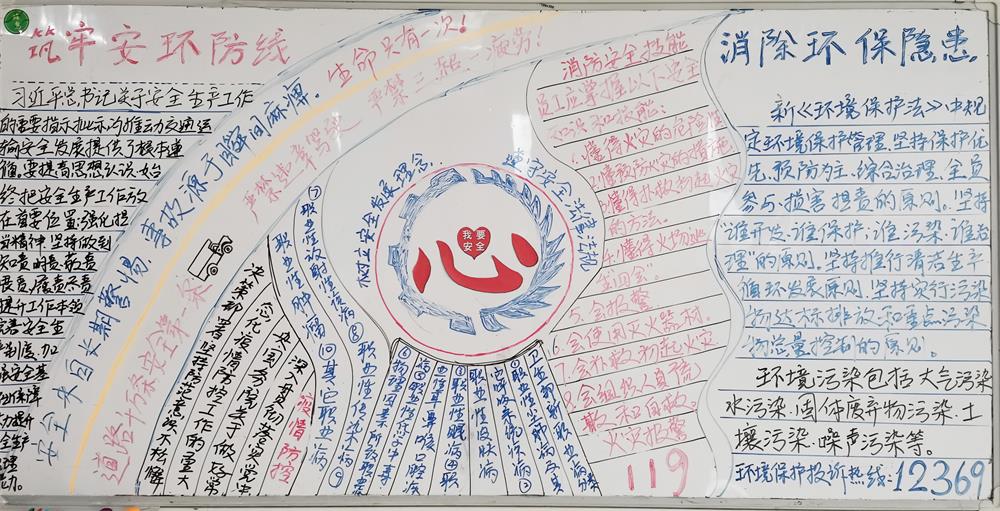 筑牢安环防线
习近平总书记关于安全生产工作
的重要指示批示,为推动交通运
输安全发展提供了根本遵
循,要提高思想认识,始
终把安全生产工作放
在首要位置,强化担
当精神,坚持做到
知责
提升工作本领
安全来自长期警惕,事故源于瞬间麻痹。
生命只有一次!
道路千万条安全第一条
严禁违章驾驶
严禁三超一疲劳!
疫情防控
深入贯彻落实党中
央国务院关于做好常
态化疫情防控工作的重大
决策部署坚持防范意识不松懈
树立安全发展理念..
遵守安全法律法规
我要
安全
心
卫健部新职业病分类
①职业性尘肺病与其
它呼吸系统疾病②
职业性皮肤病
③职业性眼病④职
业性耳鼻喉口腔疾
病⑤职业性化学中毒
⑥物理因素所致职业病
⑦职业性放射性疾病⑧
职业性传染病⑨
职业性肿瘤⑩其它职业病
消防安全技能
员工应掌握以下安全
知识和技能:
1.懂得火灾的危险性
2.懂预防火灾的措施
3.懂得扑救初起火灾
的方法。
4.懂得火场逃
生
5.会报警
6.会使用灭火器材。
7.会扑救初起火灾
8.会组织人员疏
散和自救。
火灾报警
119
消除环保隐患
新《环境保护法》中规
定环境保护管理,坚持保护优
先、预防为主、综合治理、全员
参与、损害担责的原则。坚持
“谁开发、谁保护,谁污染、谁治
理”的原则。坚持推行清洁生产
循环发展原则。坚持实行污染
物达标排放和重点污染
物总量控制的原则。
环境污染包括大气污染
水污染、固体废弃物污染、土
壤污染、噪声污染等。
环境保护投诉热线:12369